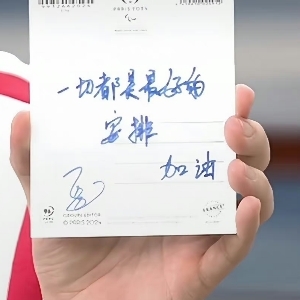 PARIS 2024
一切都是最好的
安排
加油
© PARIS 2024